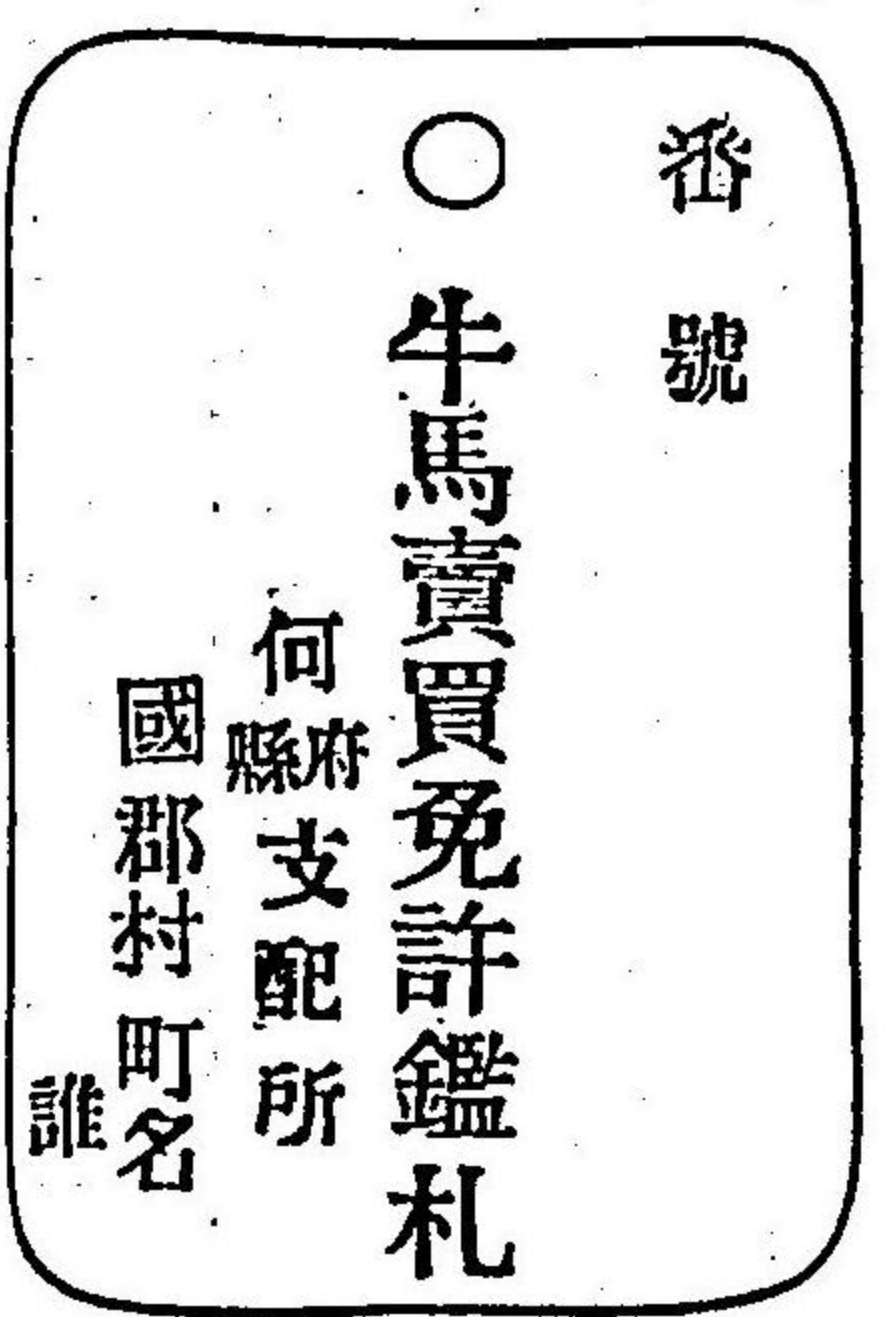 番號
○牛馬賣買免許鑑札
何府縣支配所
國郡村町名
誰